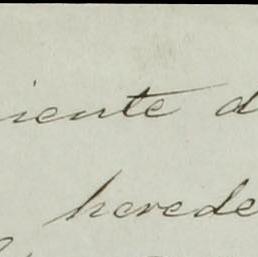 iente d
herede